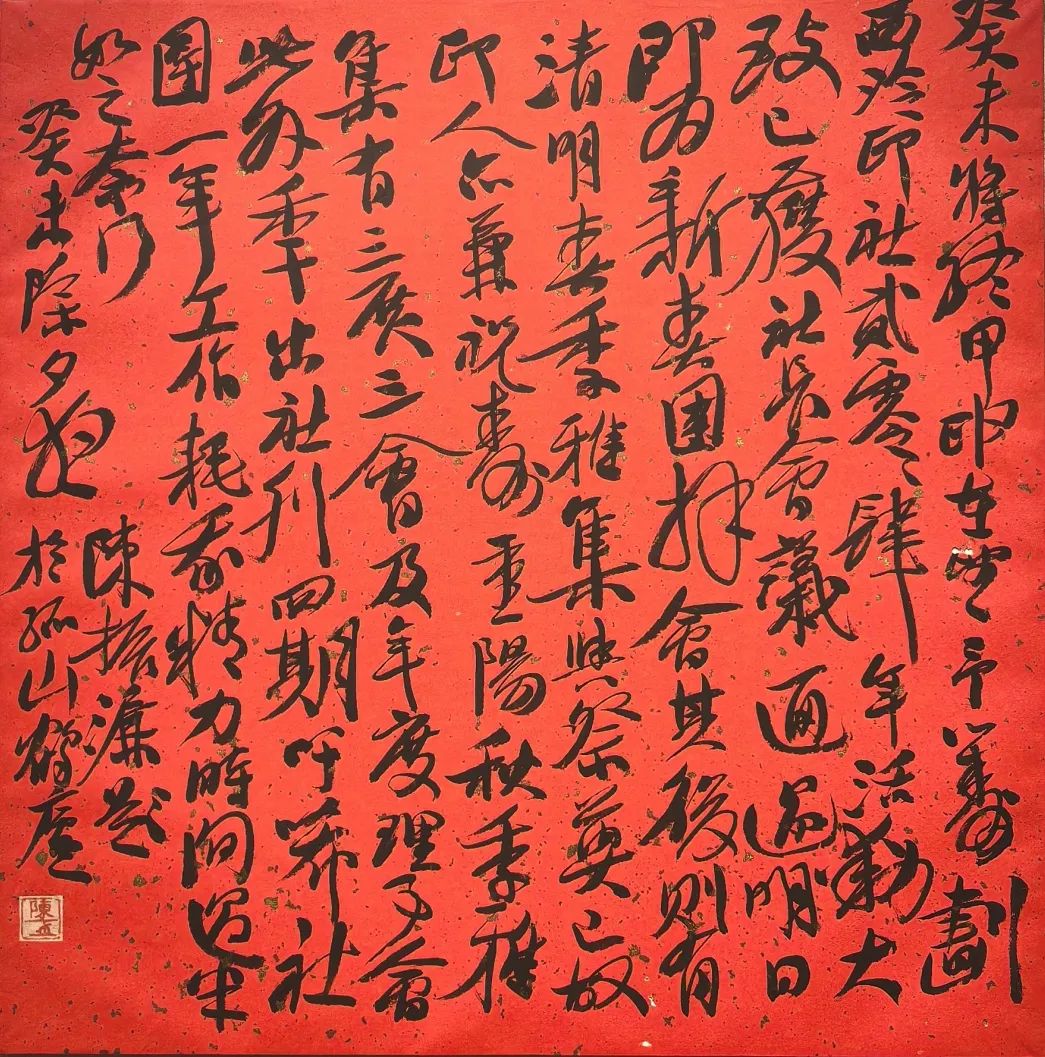 癸未將終甲申在望予籌劃
西泠印社貳零零肆年活動大
致已獲社長會議通過明日
即為新春團拜會其後則有
清明春季雅集與祭奠已故
印人亦兼祝壽重陽秋季雅
集有三展三會及年度理事會
此外季出社刊四期吁社
團一年工作耗我精力時間過半
如之奈何 陳振濂
癸未除夕夜 於孤山鶴廬
陳